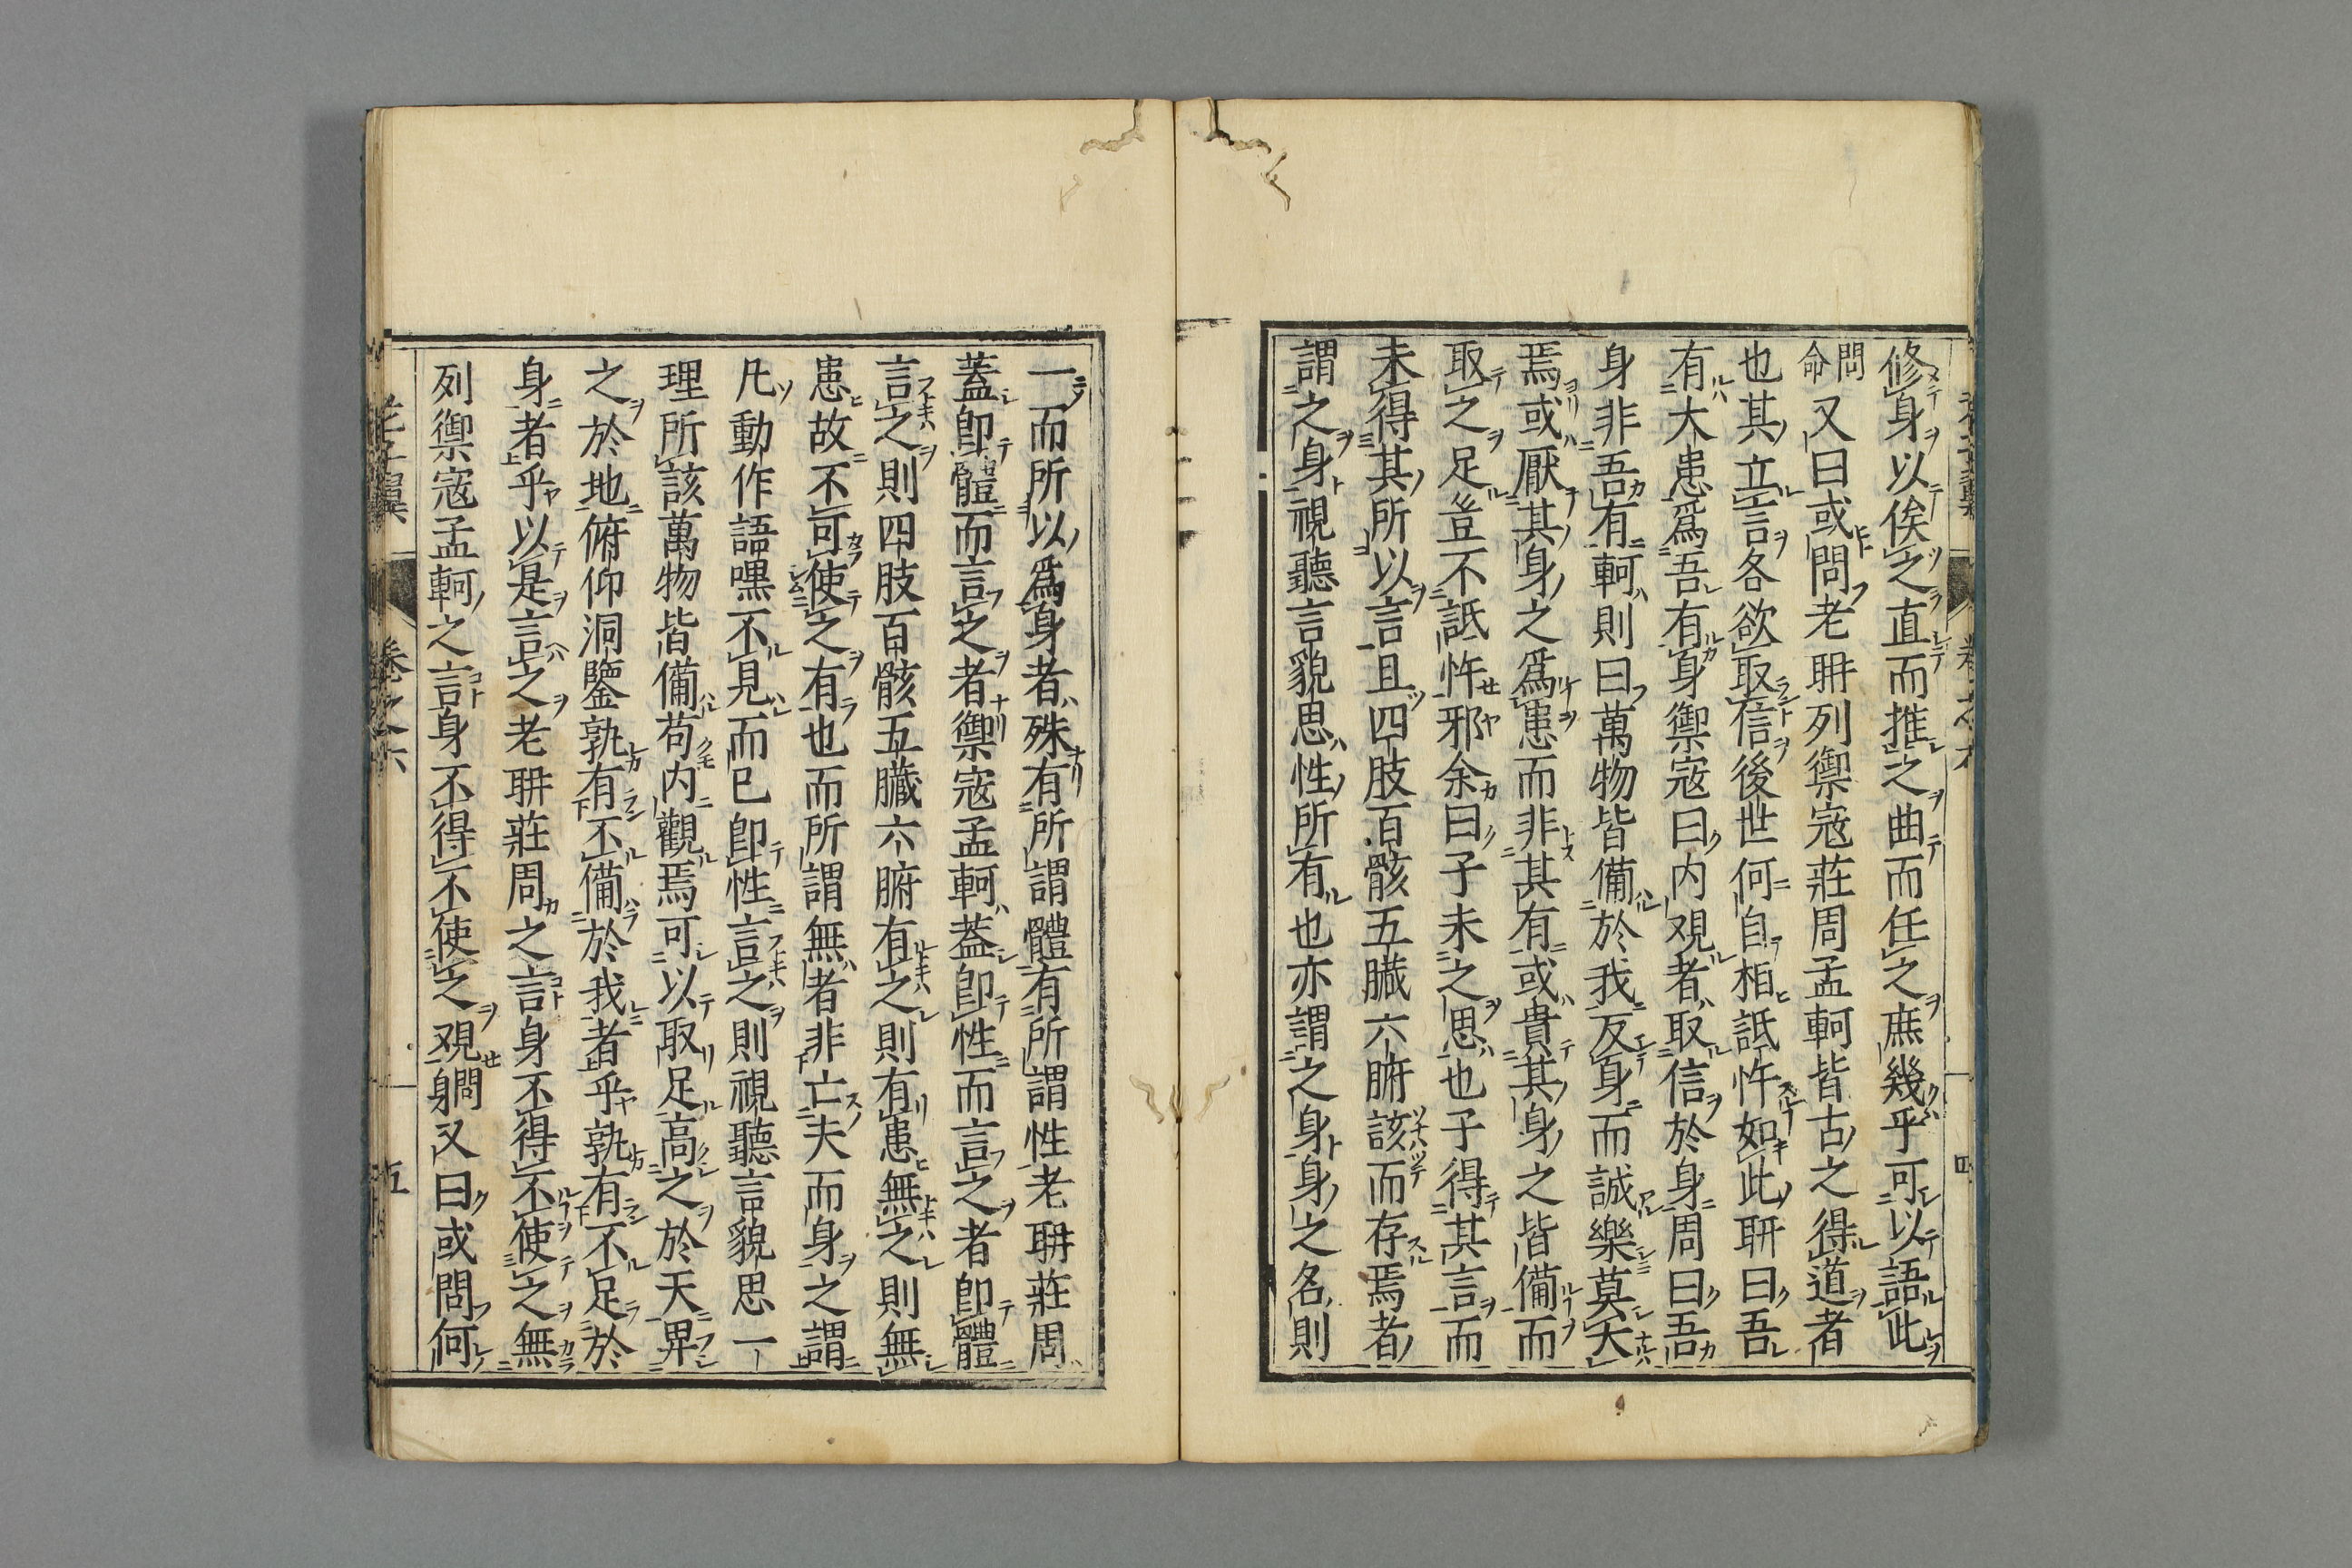 修身以俟之直而推之曲而任之庶幾乎可以語此
問命 又曰或問老聃列禦寇莊周孟軻皆古之得道者
也其立言各欲取信後世何自相詆忤如此聃曰吾
有大患爲吾有身禦寇曰内观者取信於身周曰吾
身非吾有軻則曰萬物皆備於我反身而誠樂莫大
焉或厭其身之爲患而非其有或貴其身之皆備而
取之足豈不詆忤邪余曰子未之思也子得其言而
未得其所以言且四肢百骸五臟六腑該而存焉者
謂之身視聽言貌思性所有也亦謂之身身之名則
一而所以爲身者殊有所謂體有所謂性老聃莊周
蓋卽體而言之者禦寇孟軻蓋卽性而言之者卽體
言之則四肢百骸五臟六腑有之則有患無之則無
患故不可使之有也而所謂無者非亡夫而身之謂
凡動作語嘿不見而已卽性言之則視聽言貌思一
理所該萬物皆備苟内觀焉可以取足高之於天畀
之於地俯仰洞鑒孰有不備於我者乎孰有不足於
身者乎以是言之老聃莊周之言身不得不使之無
列禦寇孟軻之言身不得不使之观身問又曰或問何
卷之六
五